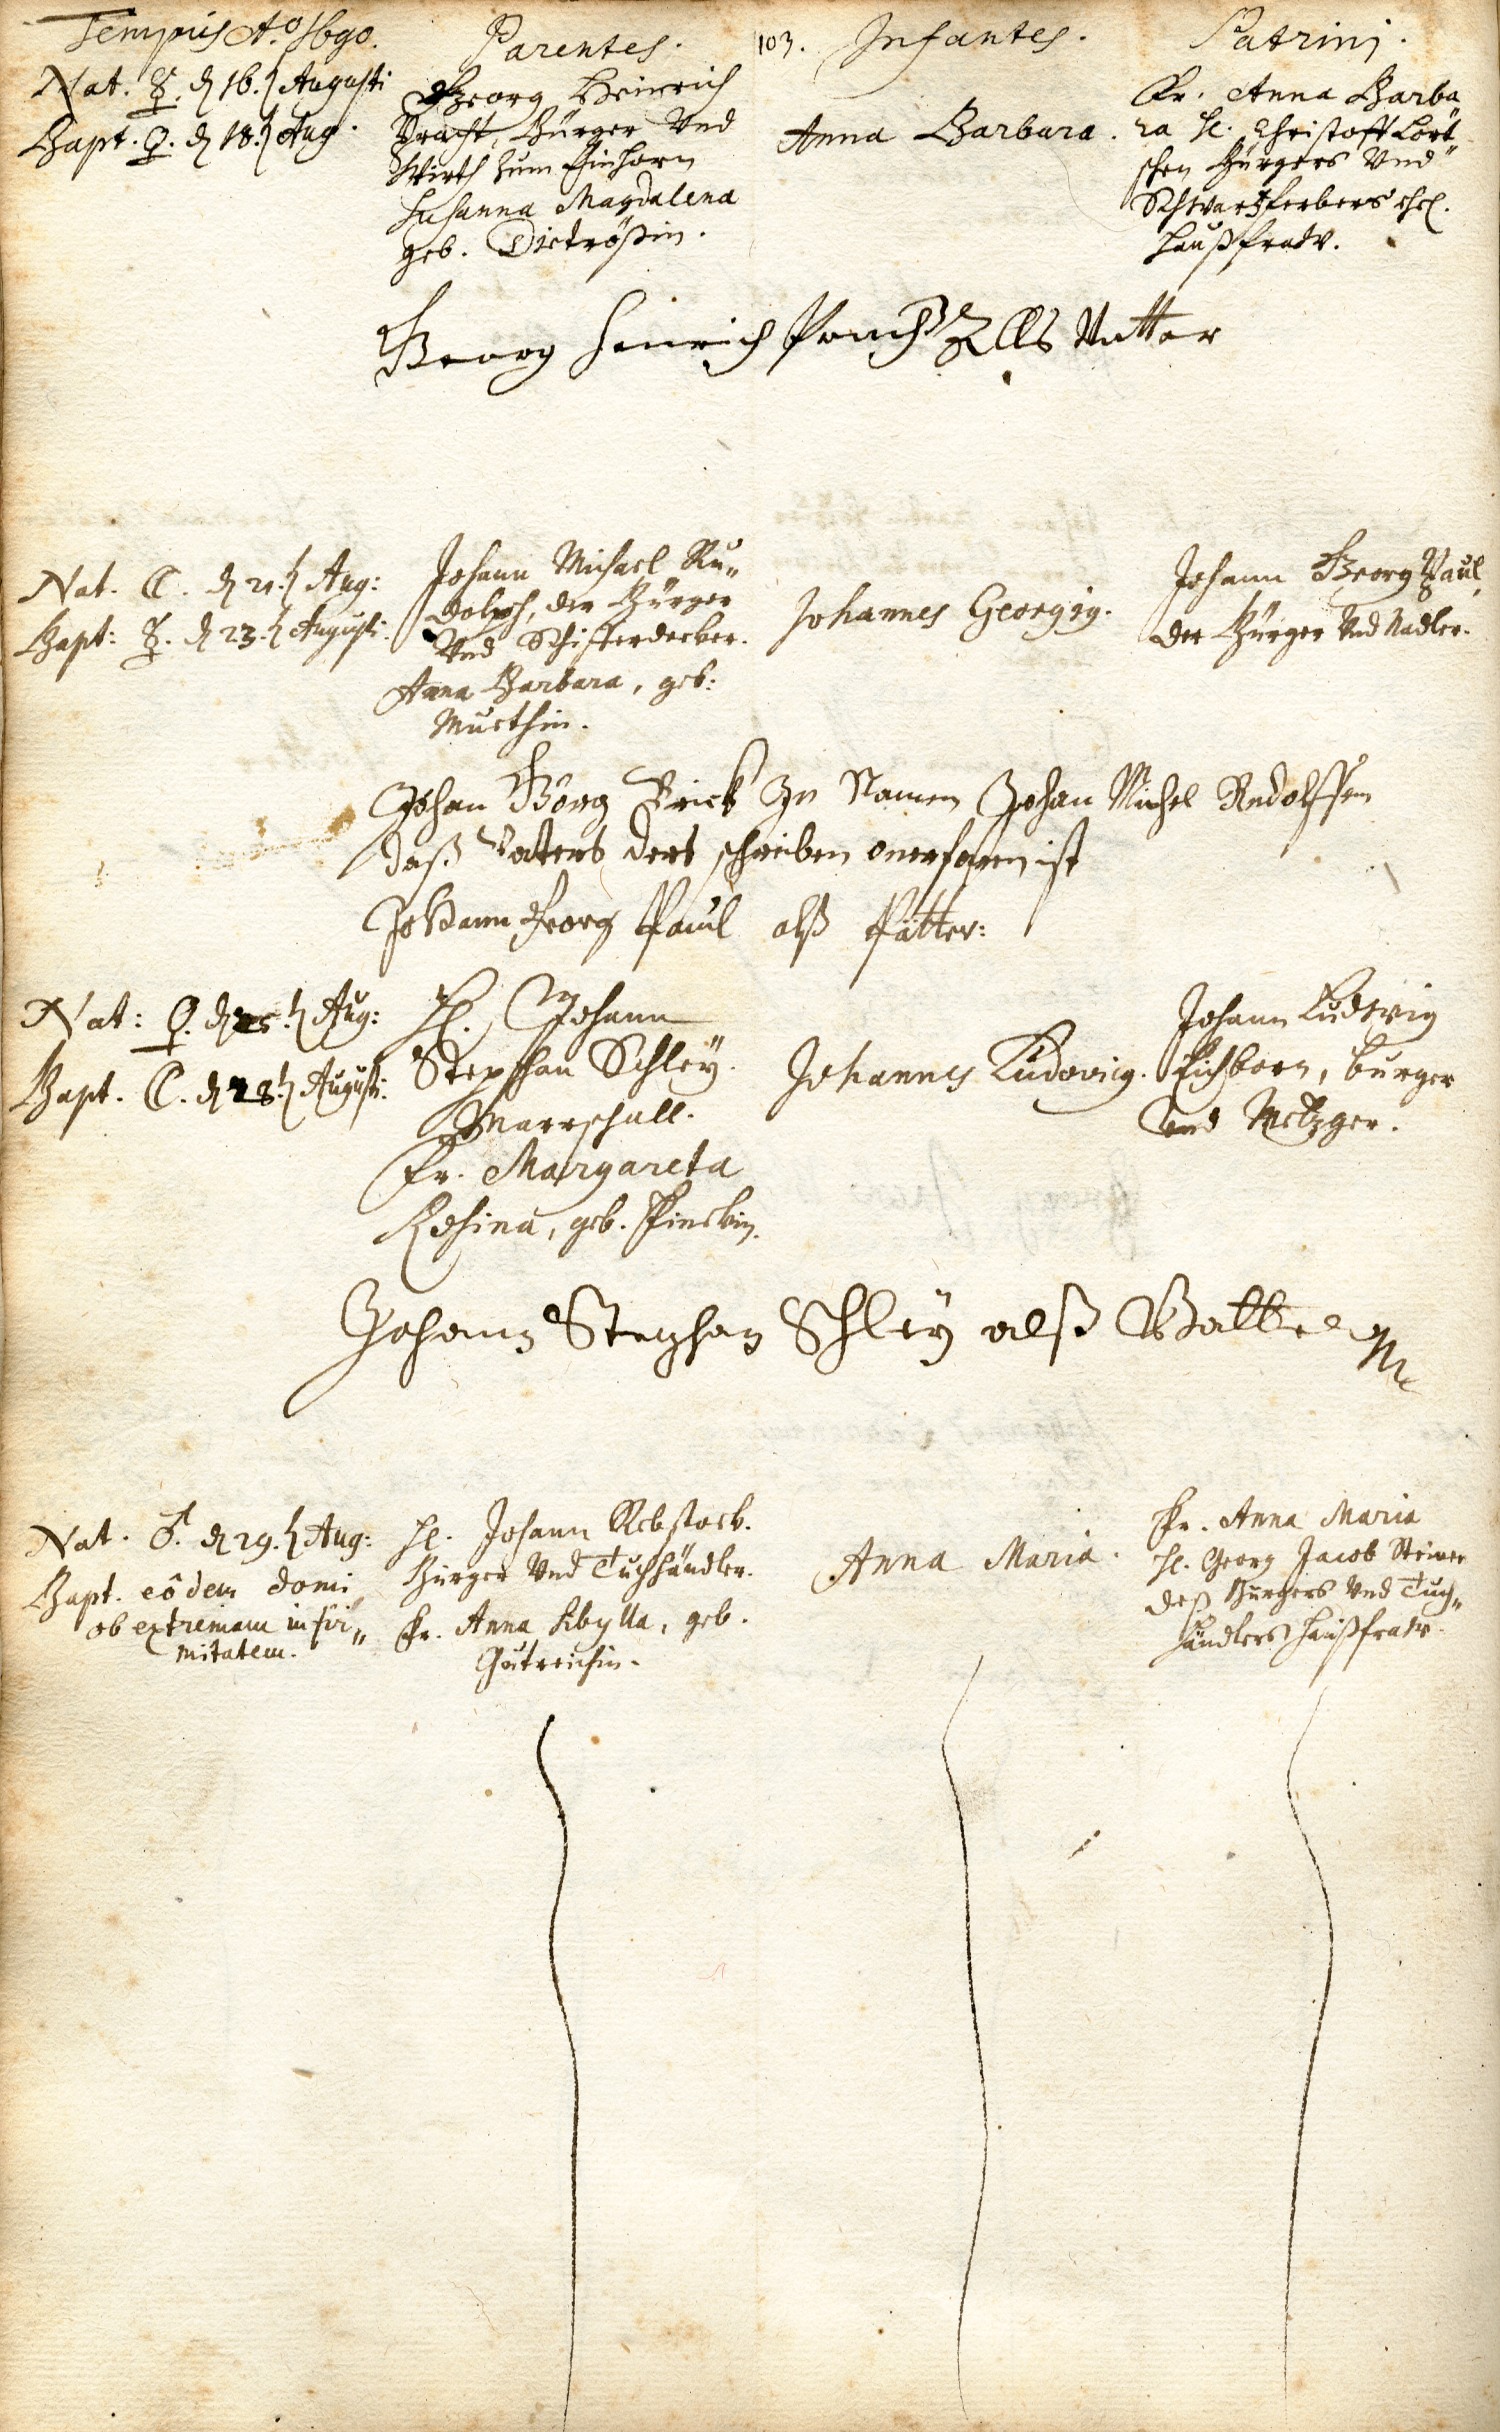 Tempus Aō 1690.
Parentes.
103.
Infantes.
Patrini.
Nat. ☿. d 16. Augusti
Bapt. ♀. d 18. Aug.
Georg Heinrich
Bürger Vnd
Wirth zum Einhorn
Susanna Magdalena
geb. Dietrößin.
Anna Barbara.
Fr. Anna Barba„
ra H. Christoff Lört„
schen Bürgers Vnd
Schwartzferbers ehel.
Haußfraw.
Georg Heinrich Alls Vatter
Nat. ☾. d 21. Aug:
Bapt: ☿. d 23. Augusti.
Johann Michael Ru„
dolph, der Bürger
Vnd Schiferdecker.
Anna Barbara, geb:
Muethin.
Johannes Georgig.
Johann Georg Paul,
der Bürger Vnd Nadler.
Johan Görg In Namen Johan Michel Rudolffen
daß Vatters schreiben onerfaren ist
Johann Georg Paul alß Pätter:
Nat: ♀. d 25. Aug:
Bapt. ☾. d 28. Augusti.
H. Johann
Stephan Schleÿ.
Marschall.
Fr. Margareta
Rosina, geb. Finckin.
Johannes Ludovicg.
Johann Ludwig
Eichborn, burger
Vnd Metzger.
Johann Stephan Schleÿ alß Vatter
Nat. ♂. d 29. Aug:
Bapt. eôdem domi
ob extremam infir„
mitatem.
H. Johann Rebstock.
Bürger Vnd Tuchhändler.
Fr. Anna Sibylla, geb.
Gutreichin.
Anna Maria.
Fr. Anna Maria
H. Georg Jacob Steiner
deß Bürgers Vnd Tuch„
händlers Haußfraw.